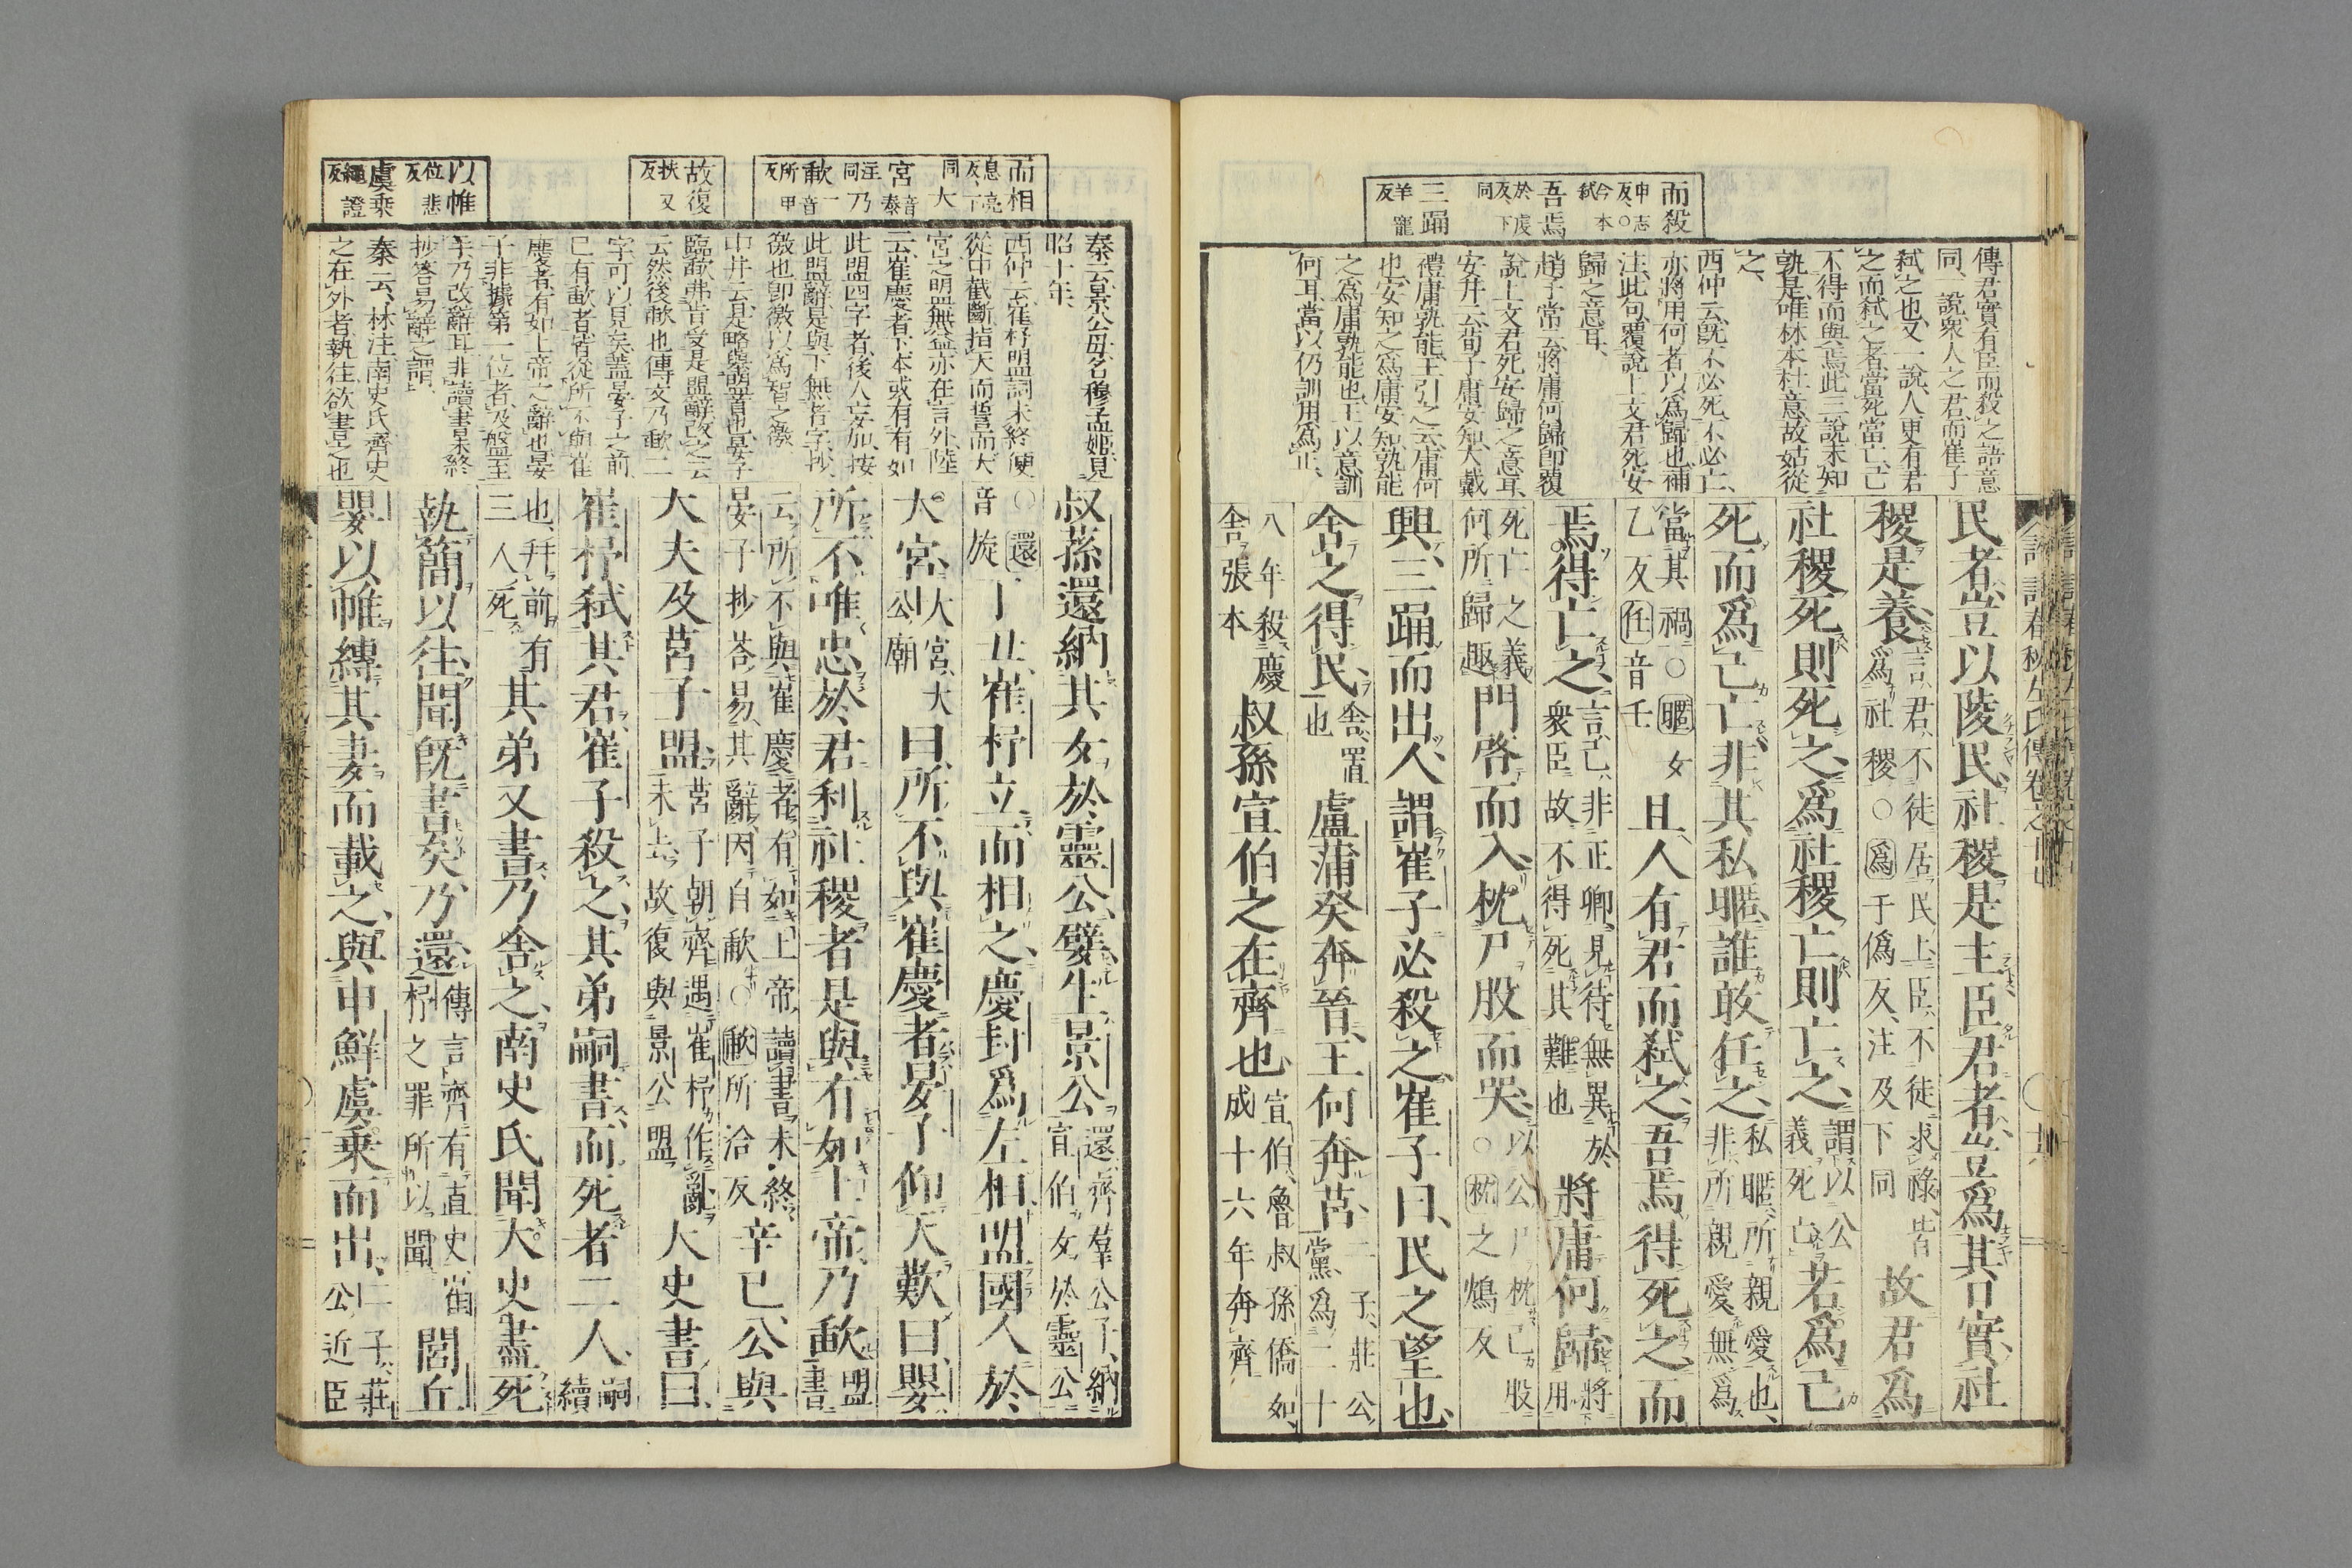 而殺 申志反○今本弑 吾焉 於虔反下同 三踊 羊寵反
傳君實有臣而殺之語意
同説衆人之君而崔子
弑之也又一説人更有君
之而弑之者當死當亡己
不得而與焉此三説未知
孰是唯林本杜意故姑從
之
西仲云既不必死不必亡
亦將用何者以爲歸也補
注此句覆説上文君死安
歸之意耳
趙子常云將庸何歸即覆
説上文君死安歸之意耳
安井云荀子庸安知大戴
禮庸孰能王引之云庸何
也安知之爲庸安知孰能
之爲庸孰能也王以意訓
何耳當以仍訓用爲正
民者豈以陵民社稷是主臣君者豈爲其口實社
稷是養言君不徒居民上臣不徒求祿皆爲社稷○爲于僞反注及下同故君爲
社稷死則死之爲社稷亡則亡之謂以公義死亡若爲己
死而爲己亡非其私暱誰敢任之私暱所親愛也非所親愛無爲
當其禍○暱女乙反任音壬且人有君而弑之吾焉得死之而
焉得亡之言己非正卿見待無異於衆臣故不得死其難也將庸何歸將用
死亡之義何所歸趣門啓而入枕尸股而哭以公尸枕己股○枕之鴆反
興三踊而出人謂崔子必殺之崔子曰民之望也
舍之得民舍置也盧蒲癸奔晉王何奔莒二子莊公黨爲二十
八年殺慶舍張本叔孫宣伯之在齊也宣伯魯叔孫僑如成十六年奔齊
而相 息亮反下同 大宮 音泰注同 乃歃 一音所甲反
故復 扶又反
以帷 位悲反 虞乘 繩證反
秦云景公母名穆孟姬見
昭十年
西仲云崔杼盟詞未終便
從中截斷指天而誓而大
宮之明無益亦在言外陸
云崔慶者下本或有有如
此盟四字者後人妄加按
此盟辭是與下無者字抄
徼也即徼以爲智之徼
中井云是略與前誓也晏子
臨歃弗肯受是盟辭改之云
云然後歃也傳文乃歃二
字可以見矣蓋晏子之前
已有歃者皆從所不與崔
慶者有如上帝之辭也晏
子非據第一位者及盤至
手乃改辭耳非讀書未終
抄答易辭之謂
秦云林注南史氏齊史
之在外者執往欲書之也
叔孫還納其女於靈公嬖生景公還齊羣公子納宣伯女於靈公
○還音旋丁丑崔杼立而相之慶封爲左相盟國人於
大宮大宮大公廟曰所不與崔慶者晏子仰天歎曰嬰
所不唯忠於君利社稷者是與有如上帝乃歃盟書
云所不與崔慶者有如上帝讀書未終晏子抄荅易其辭因自歃○歃所洽反辛巳公與
大夫及莒子盟莒子朝齊遇崔杼作亂未去故復與景公盟大史書曰
崔杼弑其君崔子殺之其弟嗣書而死者二人嗣續
也幷前有三人死其弟又書乃舍之南史氏聞大史盡死
執簡以往聞既書矣乃還傳言齊有直史崔杼之罪所以聞閭丘
嬰以帷縛其妻而載之與申鮮虞乘而出二子莊公近臣